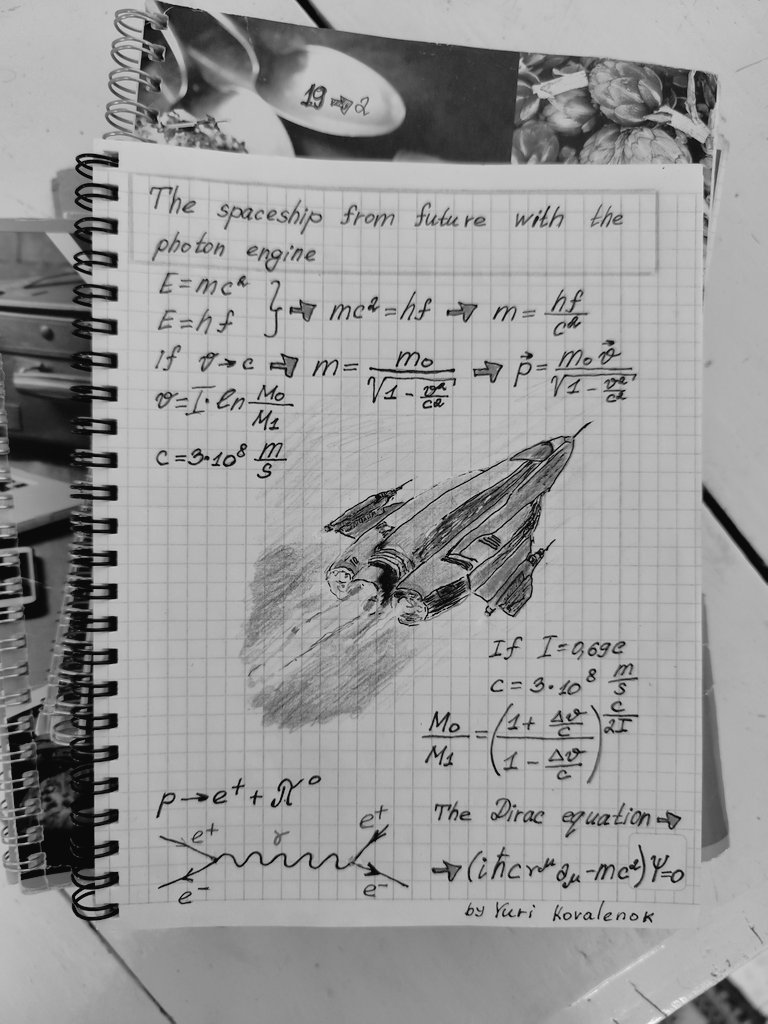 19 ⇒ 2
The spaceship from future with the
photon engine
E = mc²
E = hf
} ⇒ mc² = hf ⇒ m = hf/c²
If v → c ⇒ m = m₀/√(1 - v²/c²) ⇒ p⃗ = m₀v⃗/√(1 - v²/c²)
v = I · ln M₀/M₁
c = 3·10⁸ m/s
If I = 0,69c
c = 3·10⁸ m/s
M₀/M₁ = ((1 + Δv/c)/(1 - Δv/c))^(c/2I)
p → e⁺ + π⁰
e⁺ γ e⁺
e⁻ e⁻
The Dirac equation ⇒
⇒ (iħcγ^μ ∂_μ - mc²)Ψ = 0
by Yuri Kovalenok